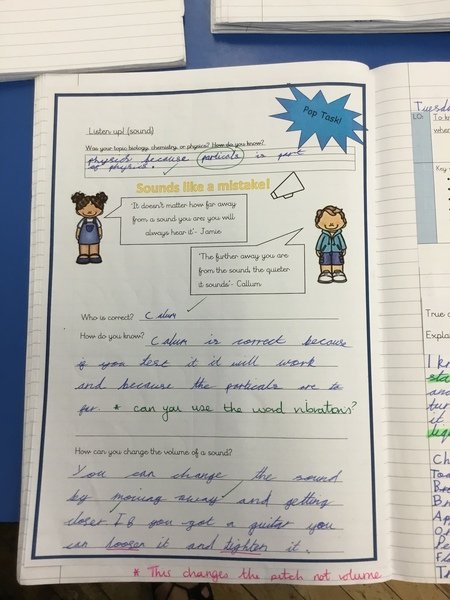 Pop Task!
Listen up! (sound)
Was your topic biology, chemistry, or physics? How do you know?
physics because particals is part
of physics.
Sounds like a mistake!
'It doesn't matter how far away
from a sound you are; you will
always hear it'- Jamie
'The further away you are
from the sound, the quieter
it sounds'- Callum
Who is correct? Calum
How do you know? Calum is correct because
if you test it it will work
and because the particals are to
far. * can you use the word vibrations?
How can you change the volume of a sound?
You can change the sound
by moving away and getting
closer If you got a guitar you
can looser it and tighten it.
* This changes the pitch not volume
Tuesda
LO: To k
Key
True o
Explai
I k
sta
and
it
Ch